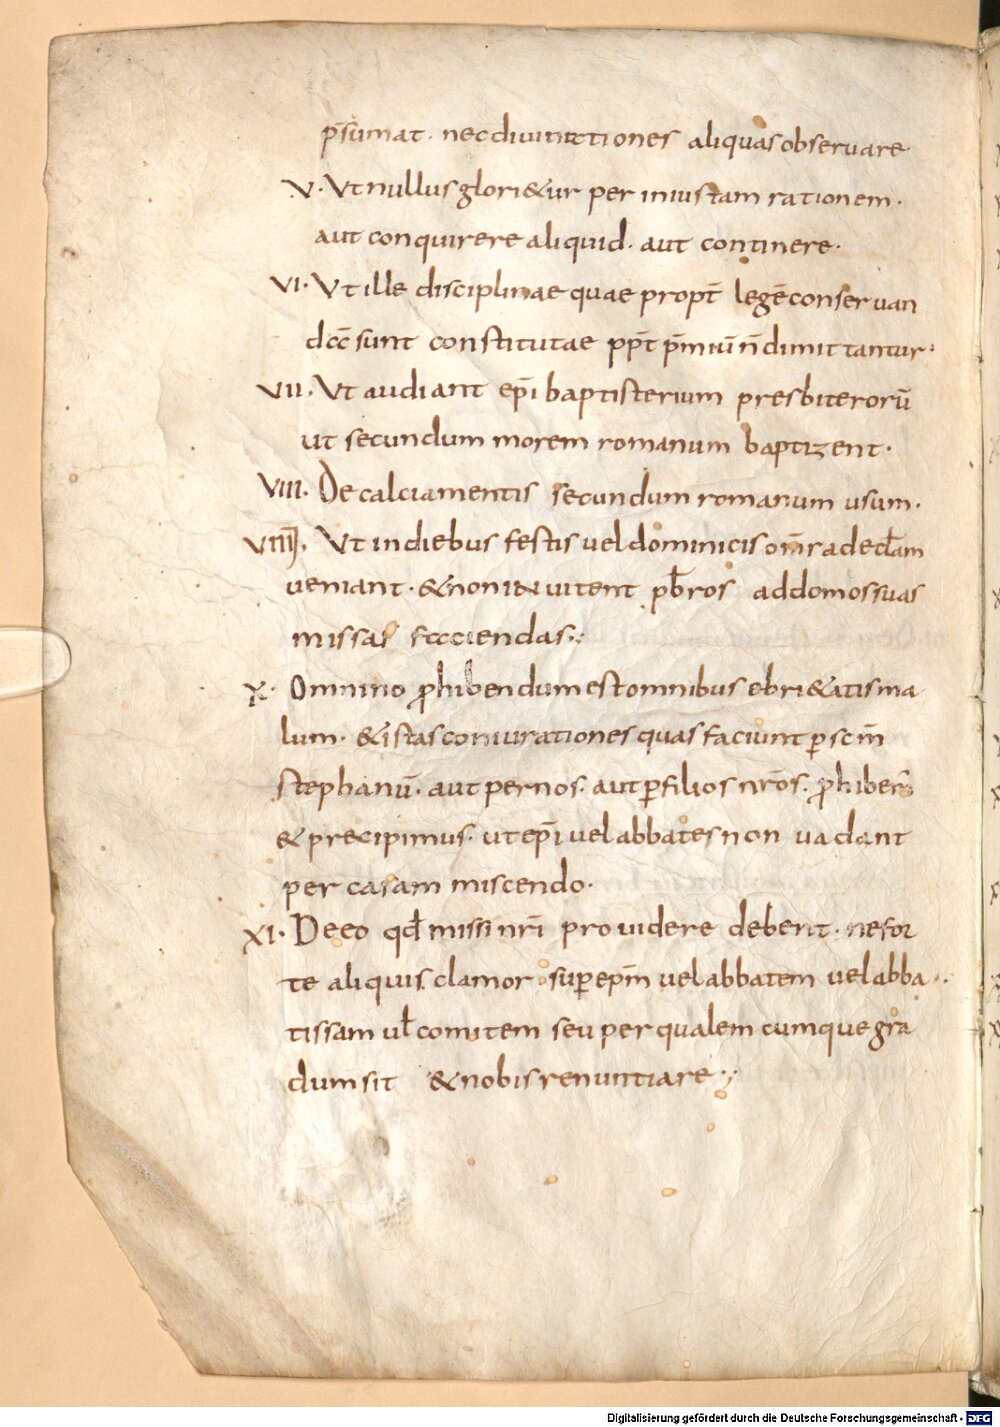 p̄sumat. nec diuinationes aliquas obseruare
V. Ut nullus glori&ur per iniustam rationem.
aut conquirere aliquid. aut continere.
VI. Ut ille disciplinae quae propt̄ legē conseruan
dā sunt constitutae pp̄t p̄miū n̄ dimittantur:
VII. Ut audiant ep̄i baptisterium presbiterorū
ut secundum morem romanum baptizent.
VIII. De calciamentis secundum romanum usum.
VIIII. Ut in diebus festis uel dominicis om̄s ad eccl̄am
ueniant. & non inuitent pb̄ros ad domos suas
missas faciendas:
X. Omnino prohibendum est omnibus ebri&atis ma
lum. & istas coniurationes quas faciunt ꝑ sc̄m
stephanū. aut per nos. aut ꝑ filios nr̄os. prohibem̄
& precipimus. ut ep̄i uel abbates non uadant
per casam miscendo.
XI. De eo qd̄ missi nr̄i prouidere debent. ne for
te aliquis clamor suꝑ ep̄m uel abbatem uel abba
tissam ul̄ comitem seu per qualem cumque gra
dum sit & nobis renuntiare.
Digitalisierung gefördert durch die Deutsche Forschungsgemeinschaft - DFG